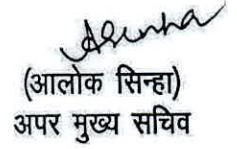 (आलोक सिन्हा)
अपर मुख्य सचिव